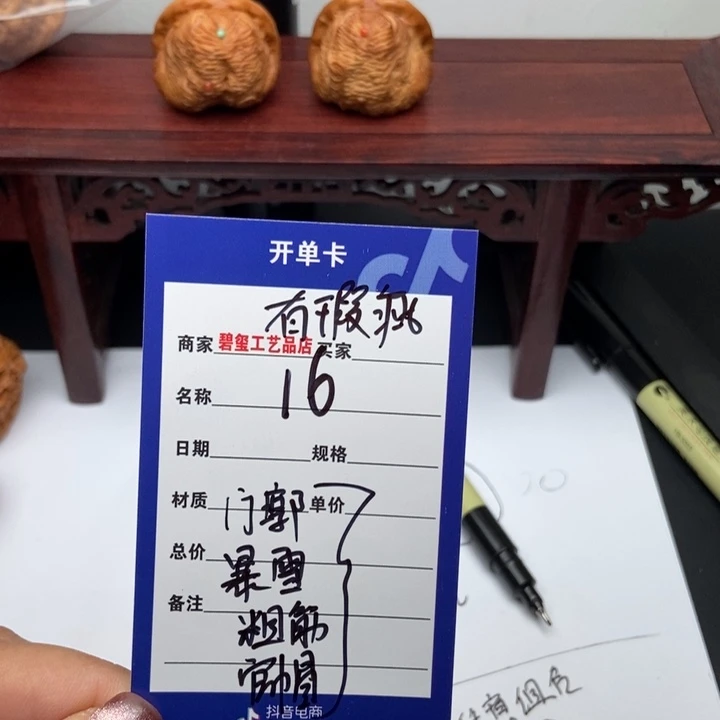 开单卡
有瑕疵
商家 碧玺工艺品店 买家
16
名称
日期 规格
材质 闷廓 单价
总价 暴雪
备注 粗筋
官帽
抖音电商
组合